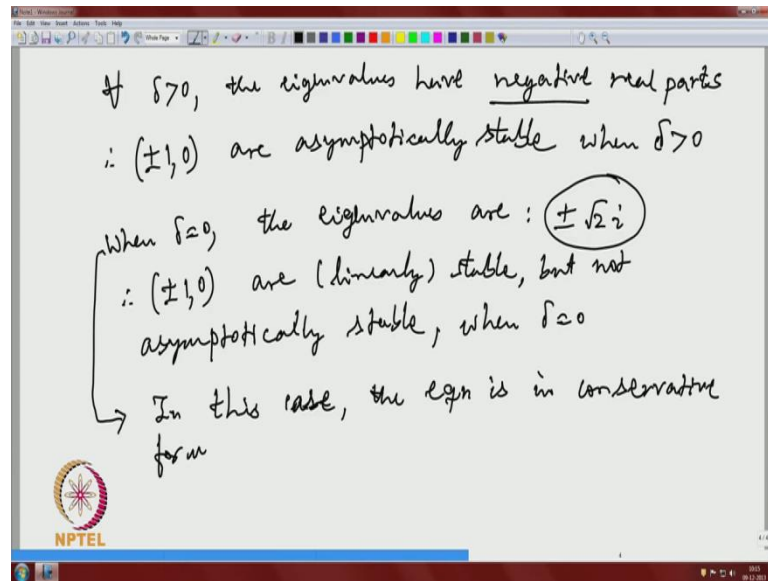 Note1 - Windows Journal
File Edit View Insert Actions Tools Help
Whole Page
If δ>0, the eigenvalues have negative real parts
∴ (±1,0) are asymptotically stable when δ>0
When δ=0, the eigenvalues are : ±√2 i
∴ (±1,0) are (linearly) stable, but not
asymptotically stable, when δ=0
In this case, the eqn is in conservative
form
NPTEL
4
10:15